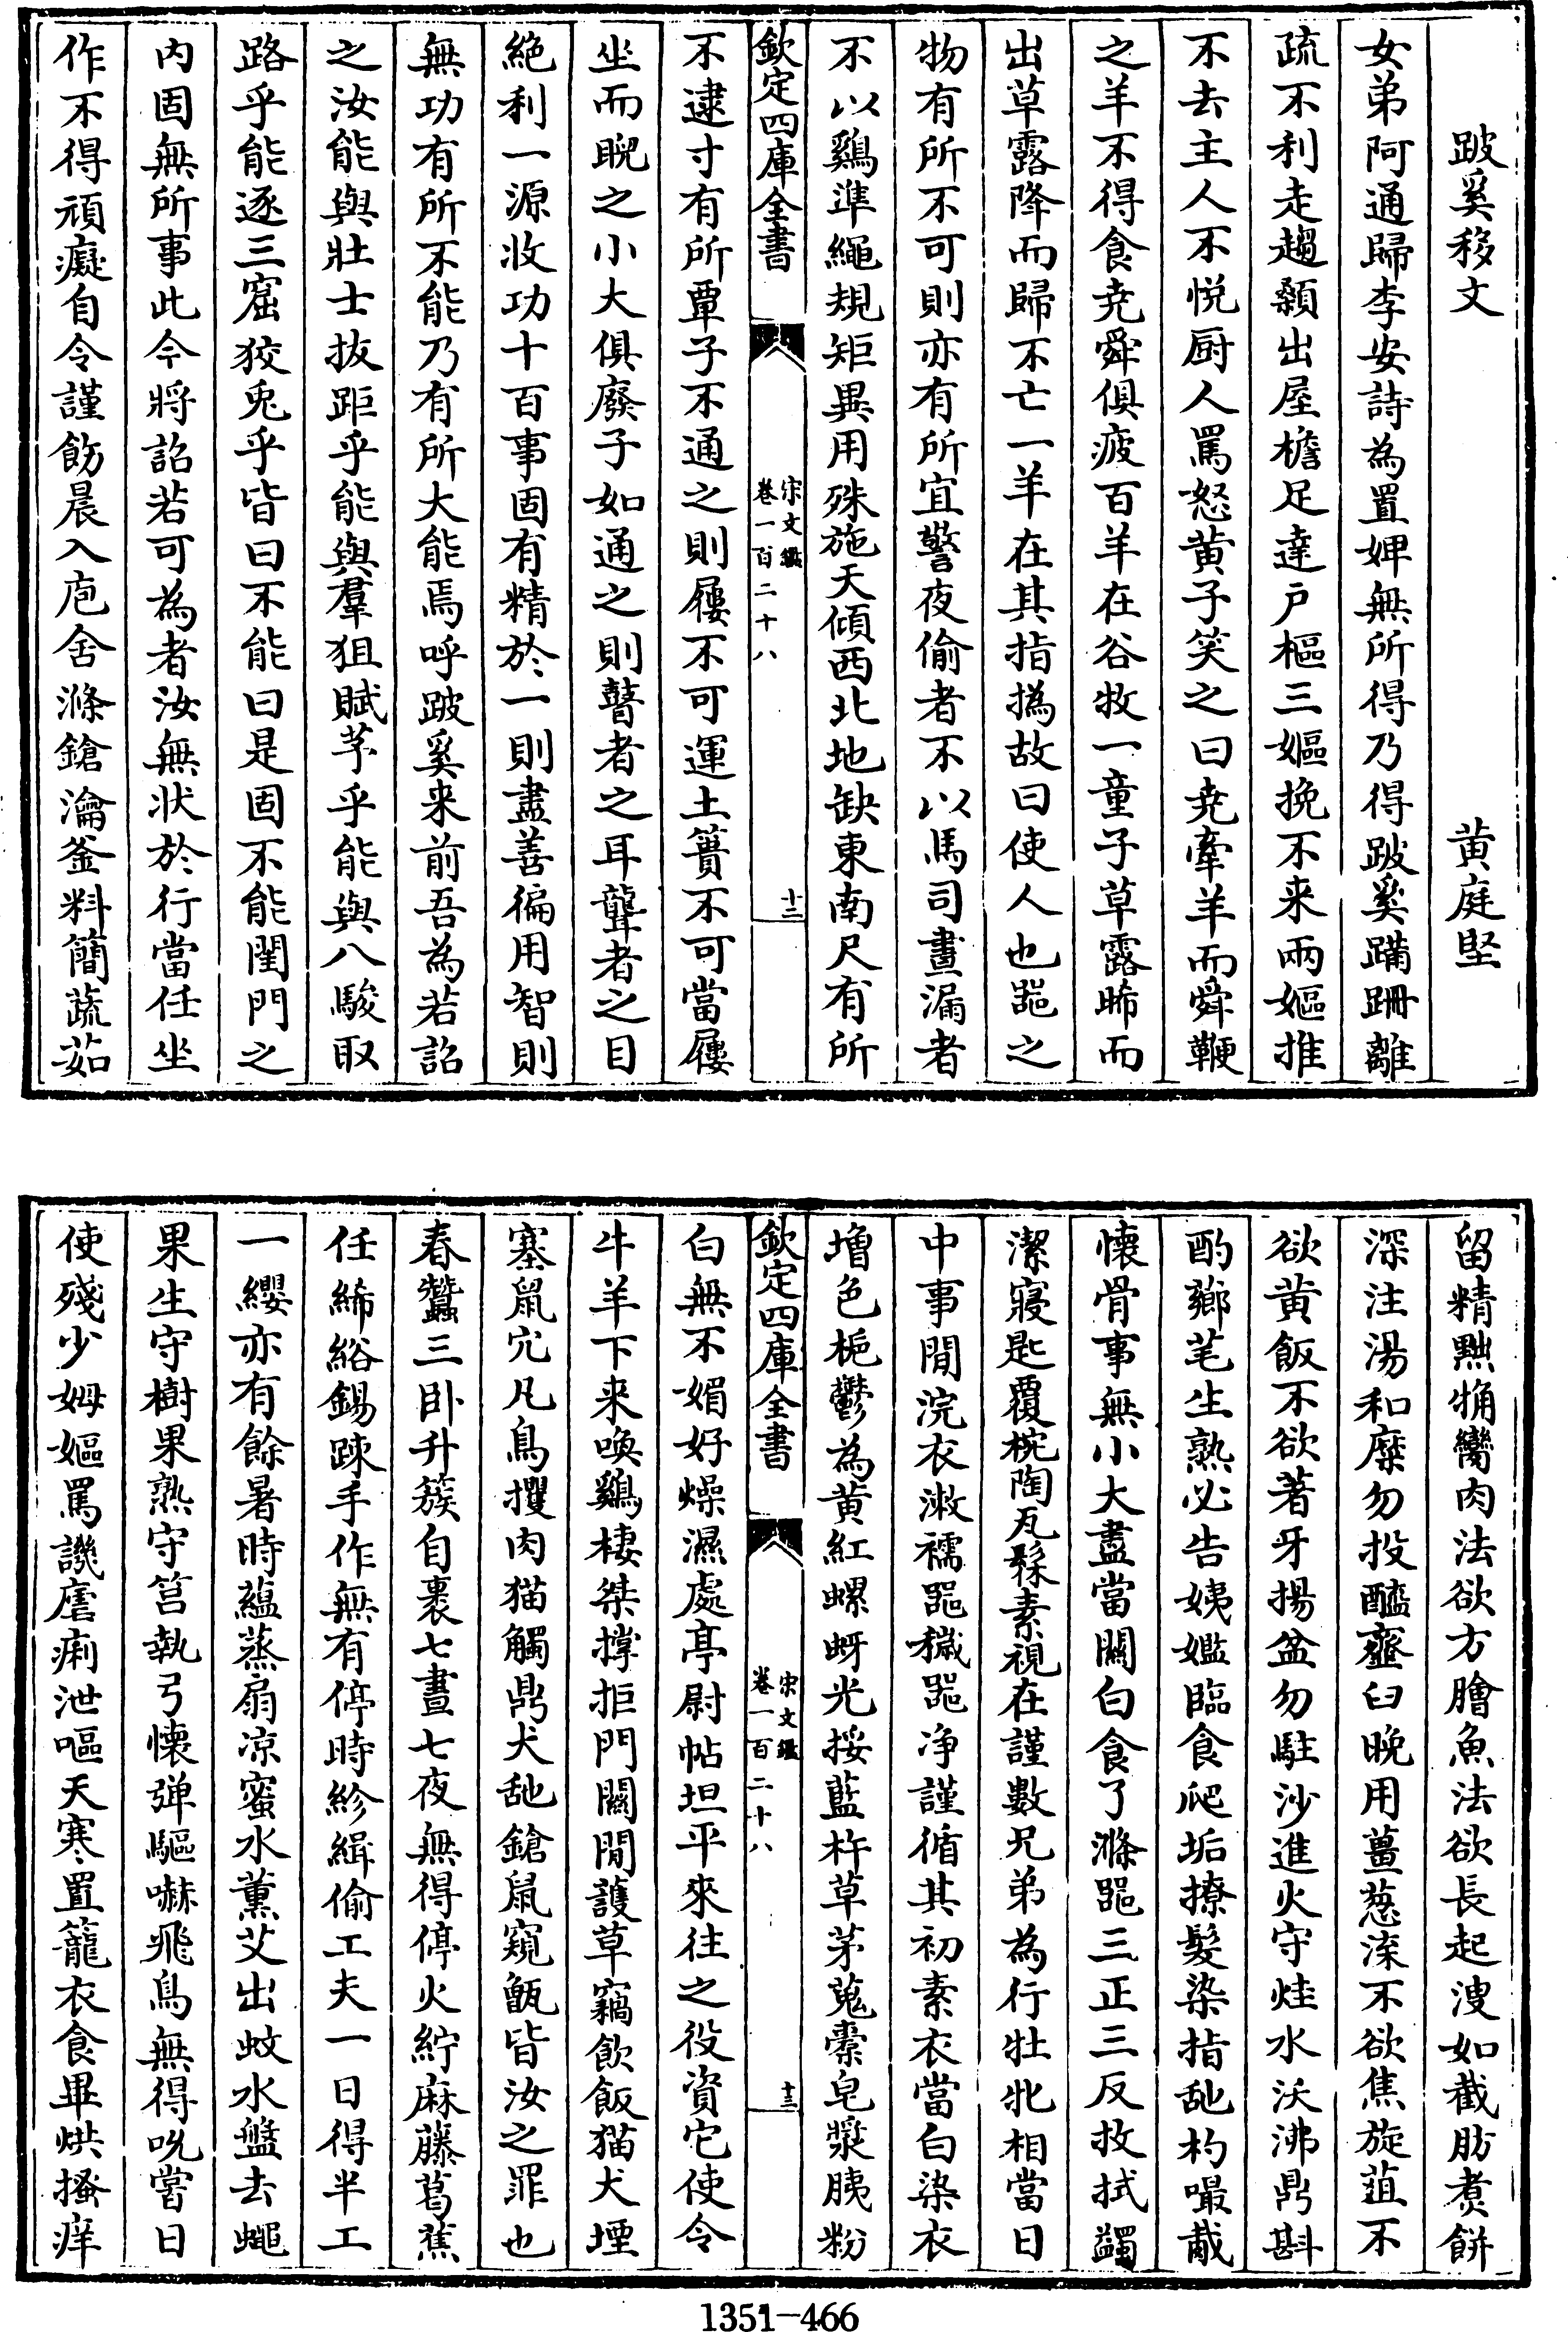 跛奚移文　黄庭堅
女弟阿通歸李安詩為置婢無所得乃得跛奚蹣跚離
疏不利走趨顙出屋檐足達戶樞三嫗挽不来兩嫗推
不去主人不悦厨人罵怒黄子笑之曰尭牽羊而舜鞭
之羊不得食尭舜俱疲百羊在谷牧一童子草露晞而
出草露降而歸不亡一羊在其指撝故曰使人也噐之
物有所不可則亦有所宜警夜偷者不以馬司晝漏者
不以鷄準繩規矩異用殊施天傾西北地缺東南尺有所
欽定四庫全書
宋文鑑
卷一百二十八
十二
不逮寸有所覃子不通之則屨不可運土蕢不可當屨
坐而睨之小大俱廢子如通之則瞽者之耳聾者之目
絕利一源收功十百事固有精於一則盡善徧用智則
無功有所不能乃有所大能焉呼跛奚来前吾為若詔
之汝能與壯士抜距乎能與羣狙賦芧乎能與八駿取
路乎能逐三窟狡兎乎皆曰不能曰是固不能閨門之
内固無所事此今將詔若可為者汝無狀於行當任坐
作不得頑癡自令謹飭晨入庖舍滌鎗瀹釜料簡蔬茹
留精黜觕臠肉法欲方膾魚法欲長起溲如截肪煑餅
深注湯和糜勿投醯虀臼晚用薑葱渫不欲焦旋葅不
欲黄飯不欲著牙揚盆勿駐沙進火守炷水沃沸鼎斟
酌薌芼生熟必告姨嬤臨食爬垢撩髮染指䑛杓嘬胾
懷骨事無小大盡當關白食了滌噐三正三反抆拭蠲
潔寢匙覆椀陶瓦髹素視在謹數兄弟為行牡牝相當日
中事閒浣衣漱襦噐穢噐淨謹循其初素衣當白染衣
增色梔鬱為黄紅螺蚜光挼藍杵草茅蒐橐皂漿胰粉
欽定四庫全書
宋文鑑
卷一百二十八
十三
白無不媚好燥濕處亭尉帖坦平來往之役資它使令
牛羊下来喚鷄棲桀撑拒門關閒護草竊飲飯猫犬堙
塞鼠穴凡鳥攫肉猫觸鼎犬䑛鎗鼠窺甑皆汝之罪也
春蠶三卧升簇自裹七晝七夜無得停火紵麻藤葛蕉
任絺綌錫疎手作無有停時紾緝偷工夫一日得半工
一纓亦有餘暑時蘊蒸扇凉蜜水薰艾出蚊水盤去蠅
果生守樹果熟守筥執弓懷弹驅嚇飛鳥無得吮嘗日
使殘少姆嫗罵譏㾜痢泄嘔天寒置籠衣食畢烘搔痒
1351—466